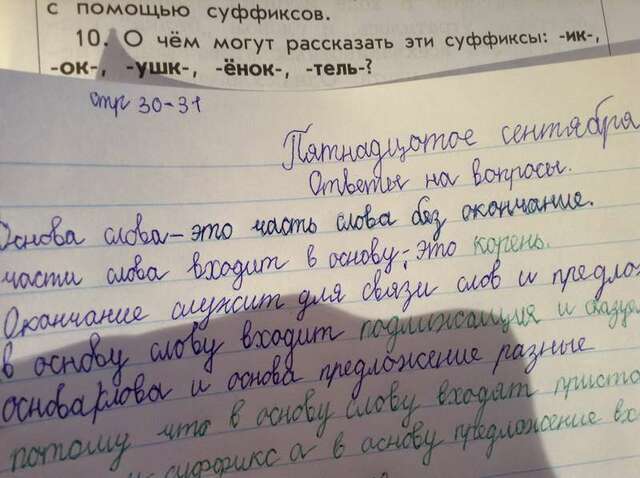 с помощью суффиксов.
10. О чём могут рассказать эти суффиксы: -ик-,
-ок-, -ушк-, -ёнок-, -тель-?
стр 30-31
Пятнадцатое сентября
Ответы на вопросы.
Основа слова - это часть слова без окончание.
части слова входит в основу - это корень.
Окончание служит для связи слов и предлож
в основу слову входит подлижащия и сказуе
основа слова и основа предложение разные
потому что в основу слову входят приста
суффикс а в основу предложение вх